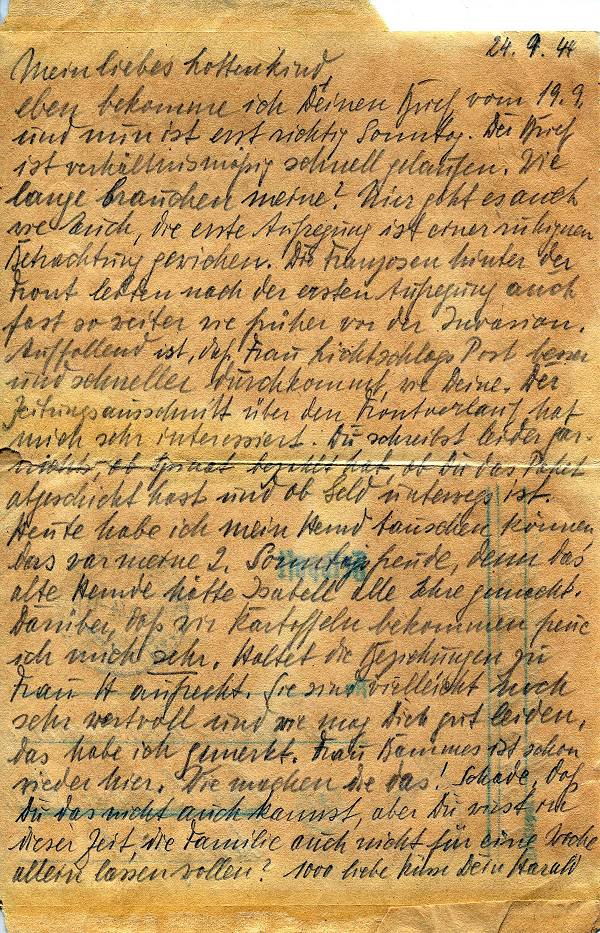 24. 9. 44
Mein liebes Lottenkind,
eben bekomme ich Deinen Brief vom 19.9.
und nun ist erst richtig Sonntag. Der Brief
ist verhältnismäßig schnell gelaufen. Wie
lange brauchen meine? Hier geht es auch
wie Euch, die erste Aufregung ist einer ruhigeren
Betrachtung gewichen. Die Franzosen hinter der
Front lebten nach der ersten Aufregung auch
fast so weiter wie früher vor der Invasion.
Auffallend ist, daß Frau Lichtschlags Post besser
und schneller durchkommt, wie Deine. Der
Zeitungsausschnitt über den Frontverlauf hat
mich sehr interessiert. Du schreibst leider gar-
nichts, ob bezahlt hat, ob Du das Paket
abgeschickt hast und ob Geld unterwegs ist.
Heute habe ich mein Hemd tauschen können
das war meine 2. Sonntagsfreude, denn das
alte Hemde hätte Isabell alle Ehre gemacht.
Darüber, daß wir Kartoffeln bekommen freue
ich mich sehr. Haltet die Beziehungen zu
Frau H aufrecht. Sie sind vielleicht noch
sehr wertvoll und sie mag Dich gut leiden,
das habe ich gemerkt. Frau Kammes ist schon
wieder hier. Wie machen die das! Schade, daß
Du das nicht auch kannst, aber Du wirst in
dieser Zeit, die Familie auch nicht für eine Woche
allein lassen wollen? 1000 liebe Küsse Dein Harald